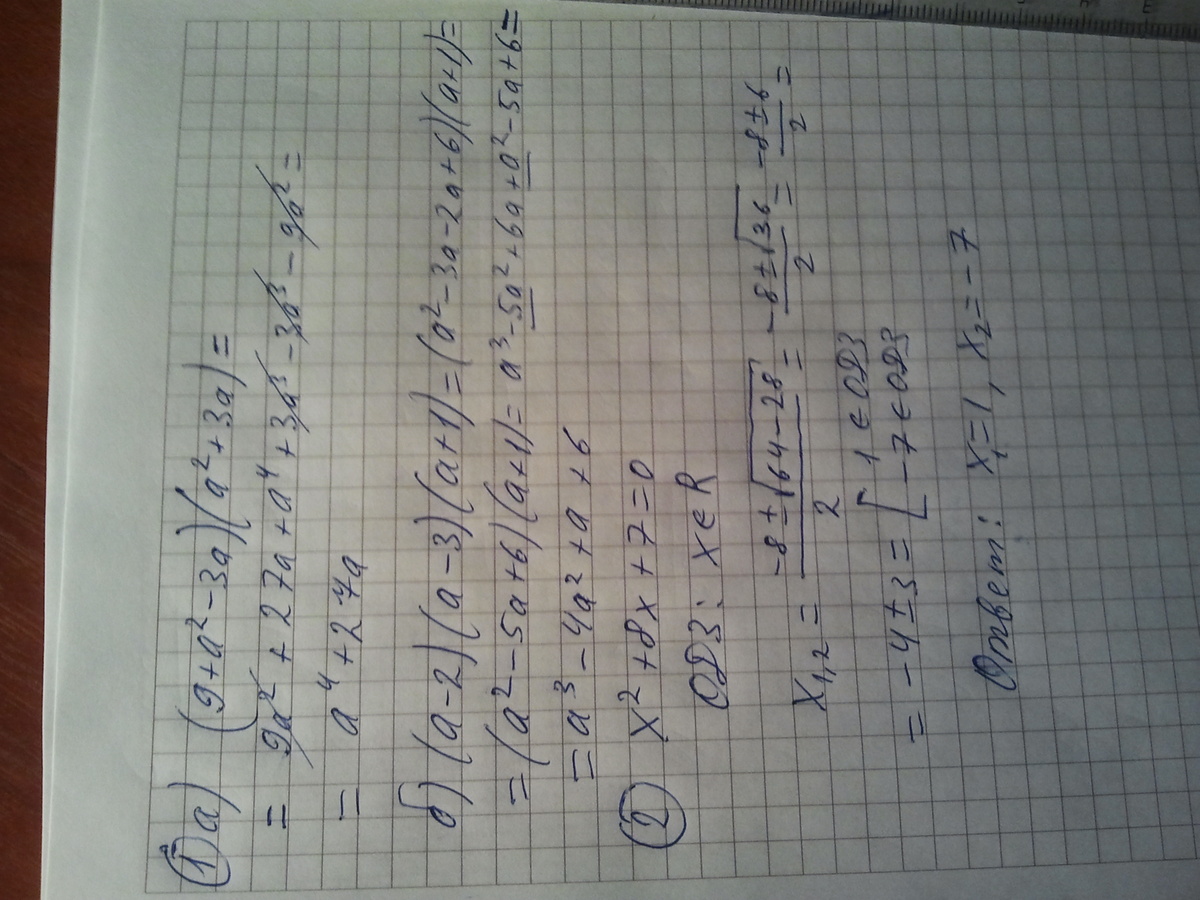 ① а) (9+a²-3a)(a²+3a)=
= 9a² + 27a + a⁴ + 3a³ - 3a³ - 9a² =
= a⁴ + 27a
б) (a-2)(a-3)(a+1) = (a²-3a-2a+6)(a+1)=
= (a²-5a+6)(a+1) = a³-5a²+6a+a²-5a+6=
= a³ - 4a² + a + 6
② x²+8x+7=0
ОДЗ: x∈R
x₁,₂ = (-8±√(64-28))/2 = (-8±√36)/2 = (-8±6)/2 =
= -4±3 = [ 1 ∈ ОДЗ
-7 ∈ ОДЗ
Ответ: x₁=1, x₂=-7